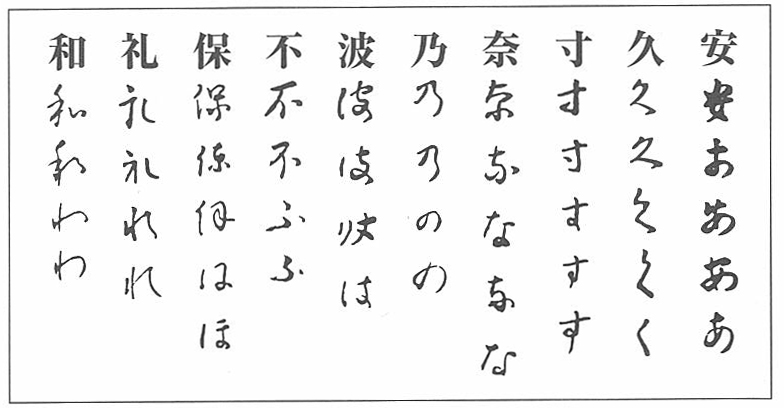 安安ああああ
久久久くくく
寸寸寸すすす
奈奈なななな
乃乃乃のの
波波波はは
不不不ふふ
保保保保ほほ
礼礼礼れれ
和和和わわ